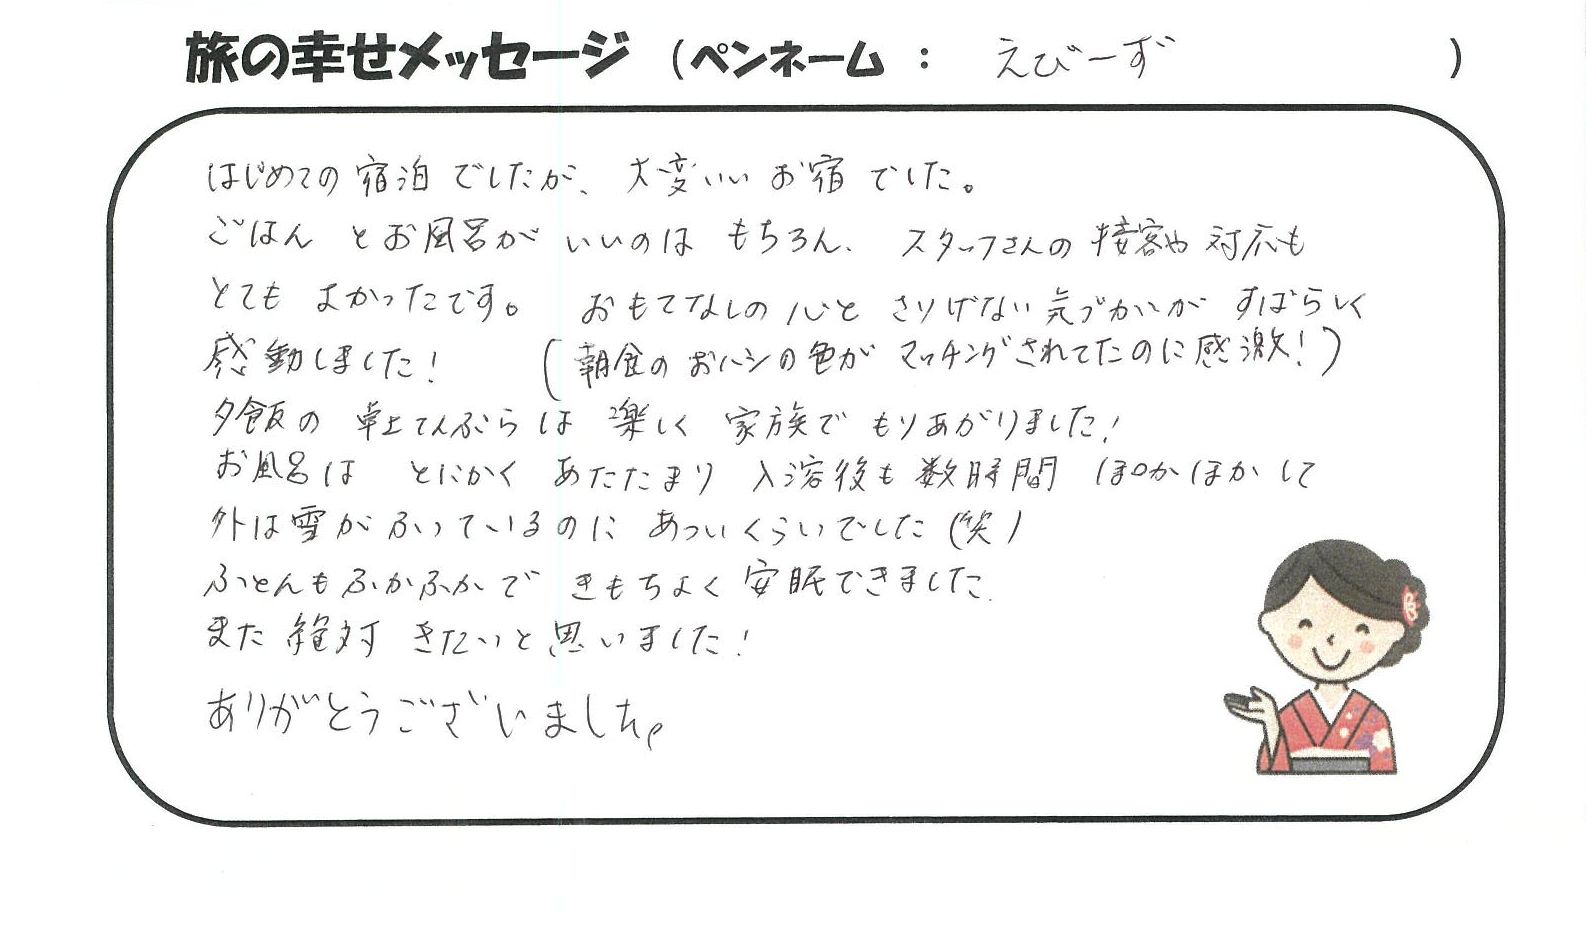 旅の幸せメッセージ (ペンネーム : えびーず )
はじめての宿泊でしたが、大変いいお宿でした。
ごはんとお風呂がいいのはもちろん、スタッフさんの接客や対応も
とてもよかったです。おもてなしの心とさりげない気づかいがすばらしく
感動しました! (朝食のおハシの色がマッチングされてたのに感激!)
夕飯の卓上てんぷらは楽しく家族でもりあがりました!
お風呂はとにかくあたたまり入浴後も数時間ぽかぽかして
外は雪がふっているのにあついくらいでした(笑)
ふとんもふかふかできもちよく安眠できました.
また絶対きたいと思いました!
ありがとうございました。